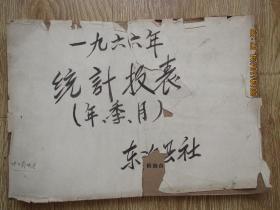 一九六六年
统計报表
(年、季、月)
东 公社